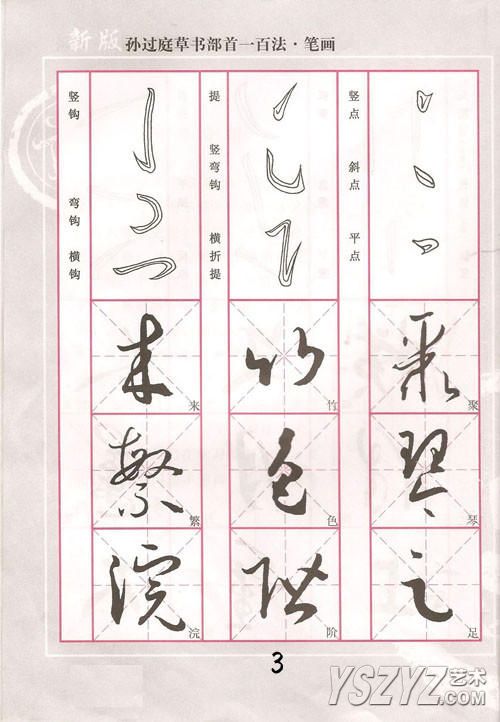 新版 孙过庭草书部首一百法·笔画
竖点 斜点 平点
提 竖弯钩 横折提
竖钩 弯钩 横钩
聚 琴 足
竹 色 阶
来 繁 浣
3
YSZYZ艺术.com